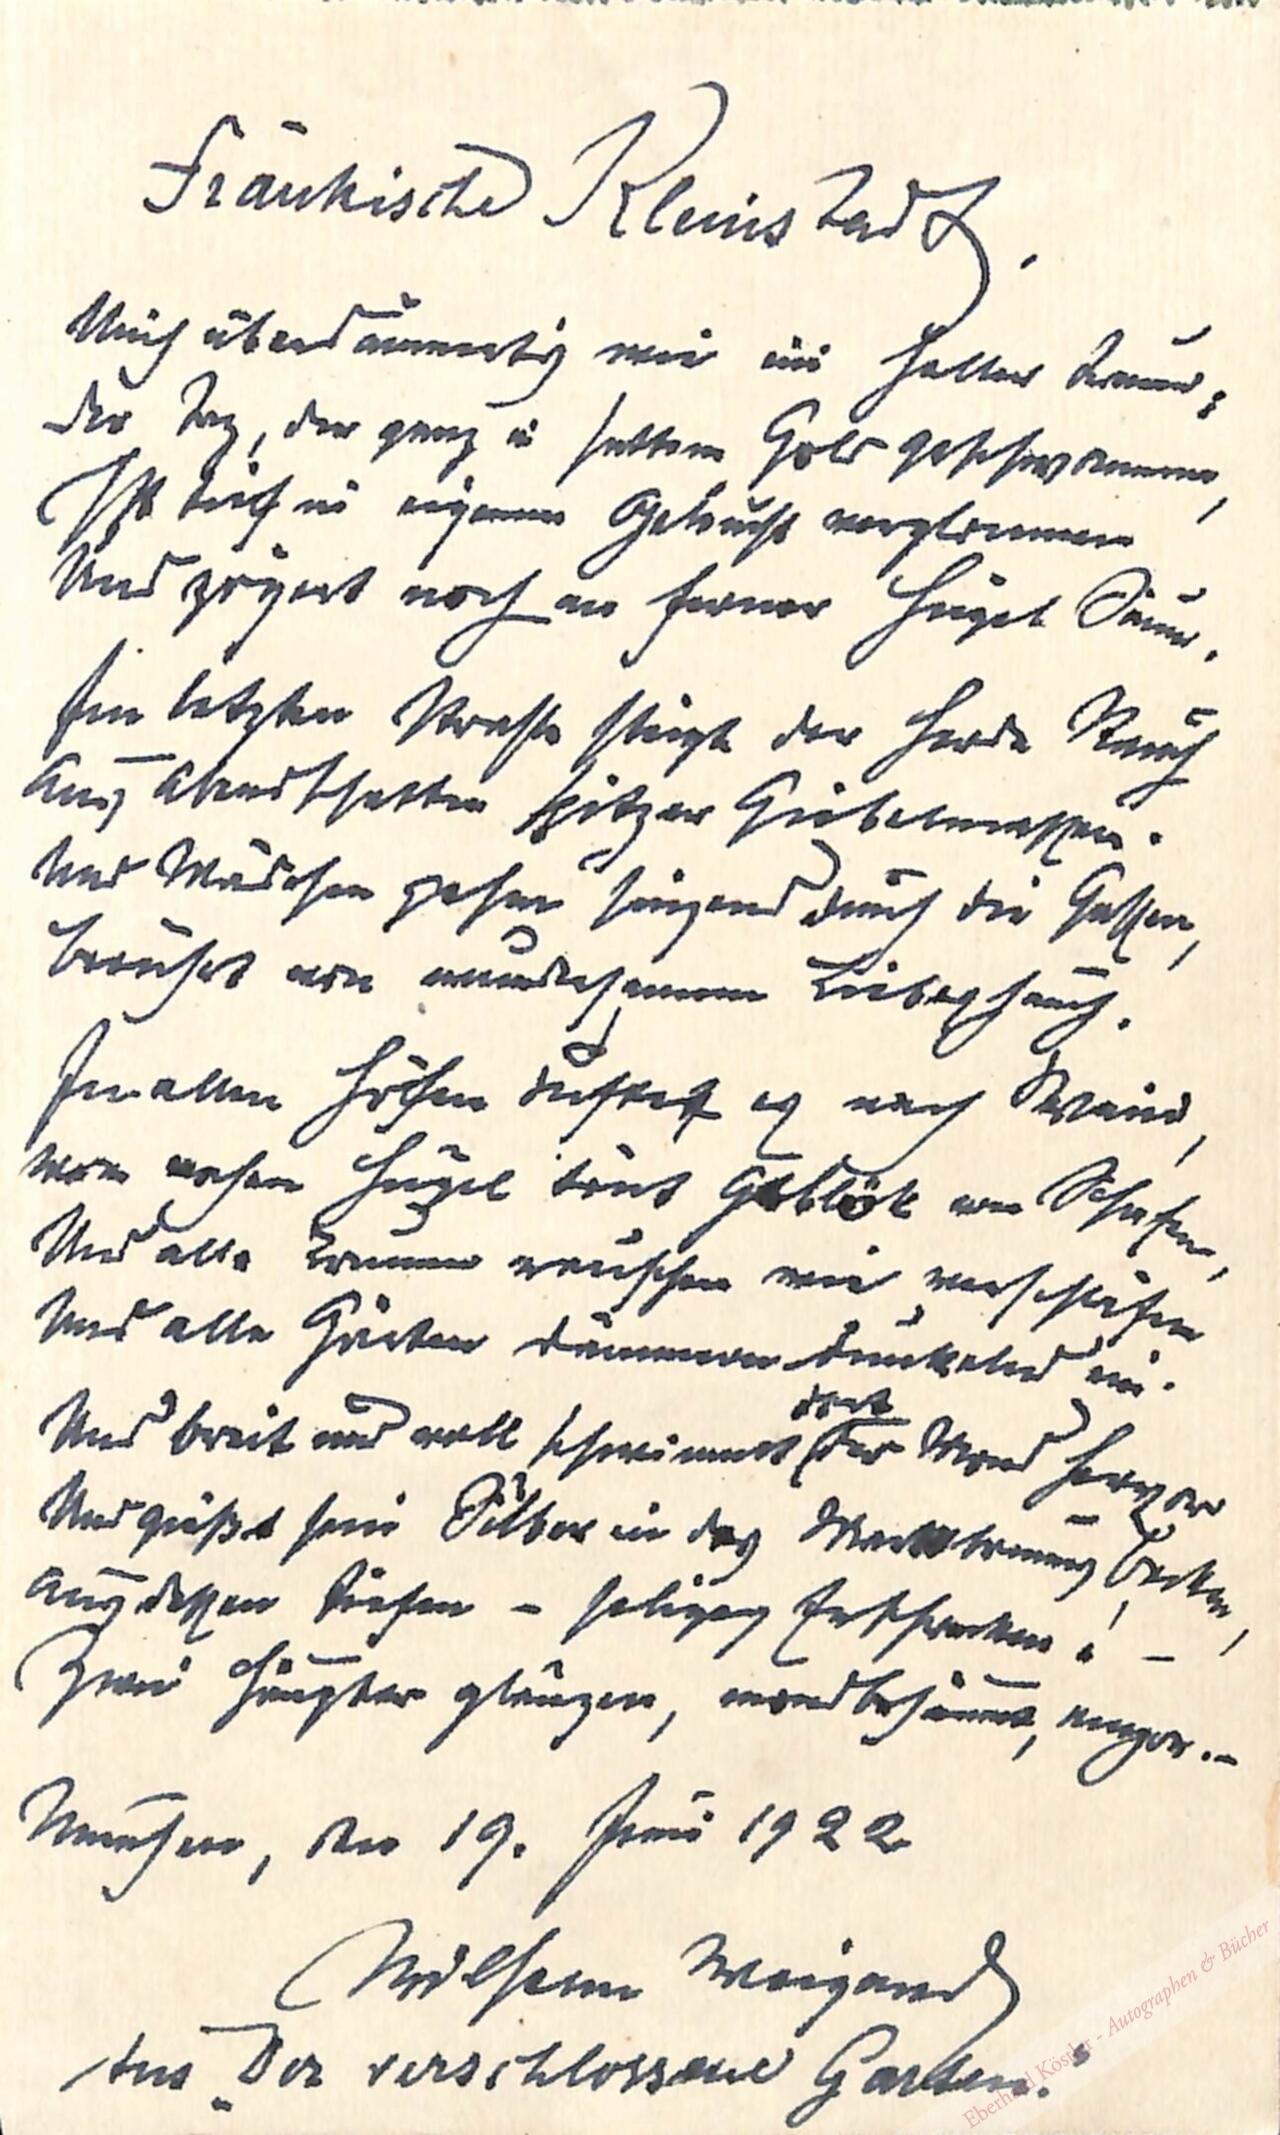 Fränkische Kleinstadt.
Mich überdämmert's wie ein heller Traum;
der Tag, der ganz in sattem Gold geschwommen,
Ist tief in eigenem Geleucht verglommen
Und zögert noch an ferner Hügel Saum.
Im letzten Strahle steigt der Herde Rauch
Aus Abendschatten spitzer Giebelmassen.
Und Mädchen gehen singend durch die Gassen,
berührt von wundersamem Liebeshauch.
In allen Höfen duftet es nach Wein,
vom nahen Hügel tönt Geblök von Schafen,
Und alle Brunnen rauschen wie verschlafen
Und alle Gärten dämmern dunkelnd ein.
dort
Und breit und voll schwimmt der Mond hervor
Und gießt sein Silber in des Marktbrunns Becken,
Aus dessen Tiefen – seliges Erschrecken! –
Zwei Häupter glänzen, mondbesäumt, empor. –
München, den 19. Juni 1922
Wilhelm Weigand
Aus „Der verschlossene Garten."
Eberhard Köstler - Autographen & Bücher